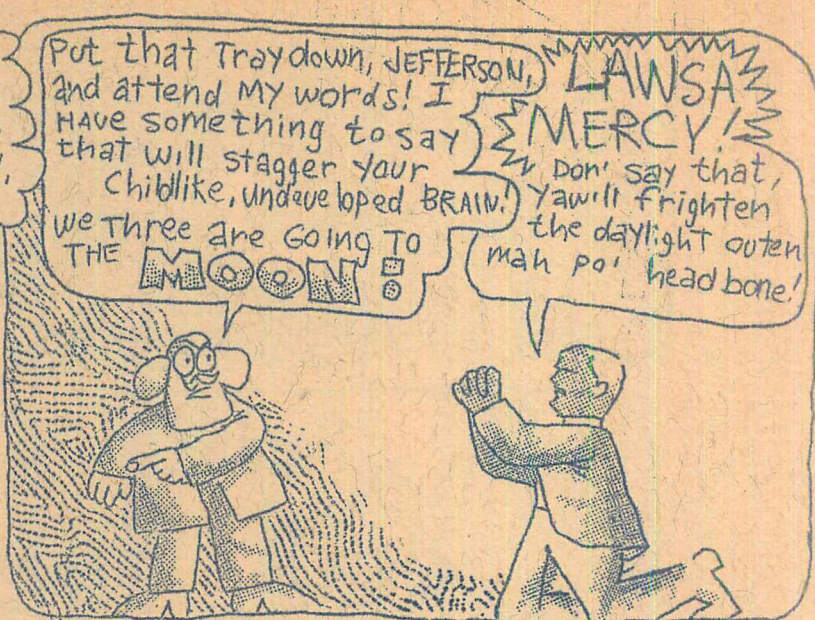 Put that Tray down, JEFFERSON,
and attend MY words! I
HAVE something to say
that will stagger your
Childlike, undeveloped BRAIN!
we Three are GoiNG TO
THE MOON!
LAWSA
MERCY!
Don' say that,
yawill frighten
the daylight outen
mah po' head bone!